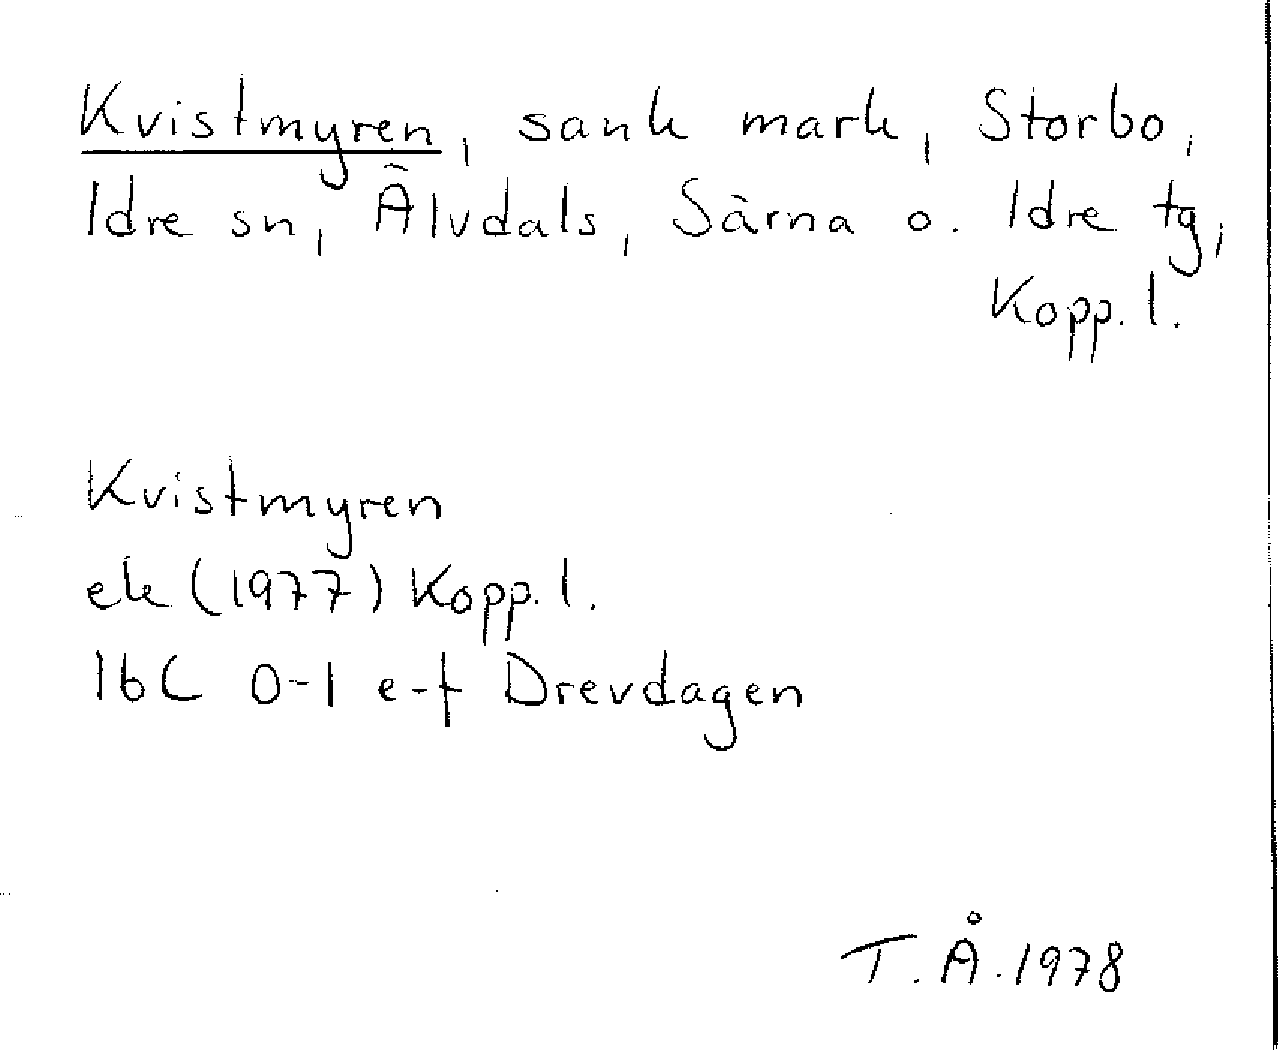 Kvistmyren, sank mark, Storbo,
Idre sn, Älvdals, Särna o. Idre tg,
Kopp. l.
Kvistmyren
ek (1977) Kopp. l.
16C 0-1 e-f Drevdagen
T. Å. 1978